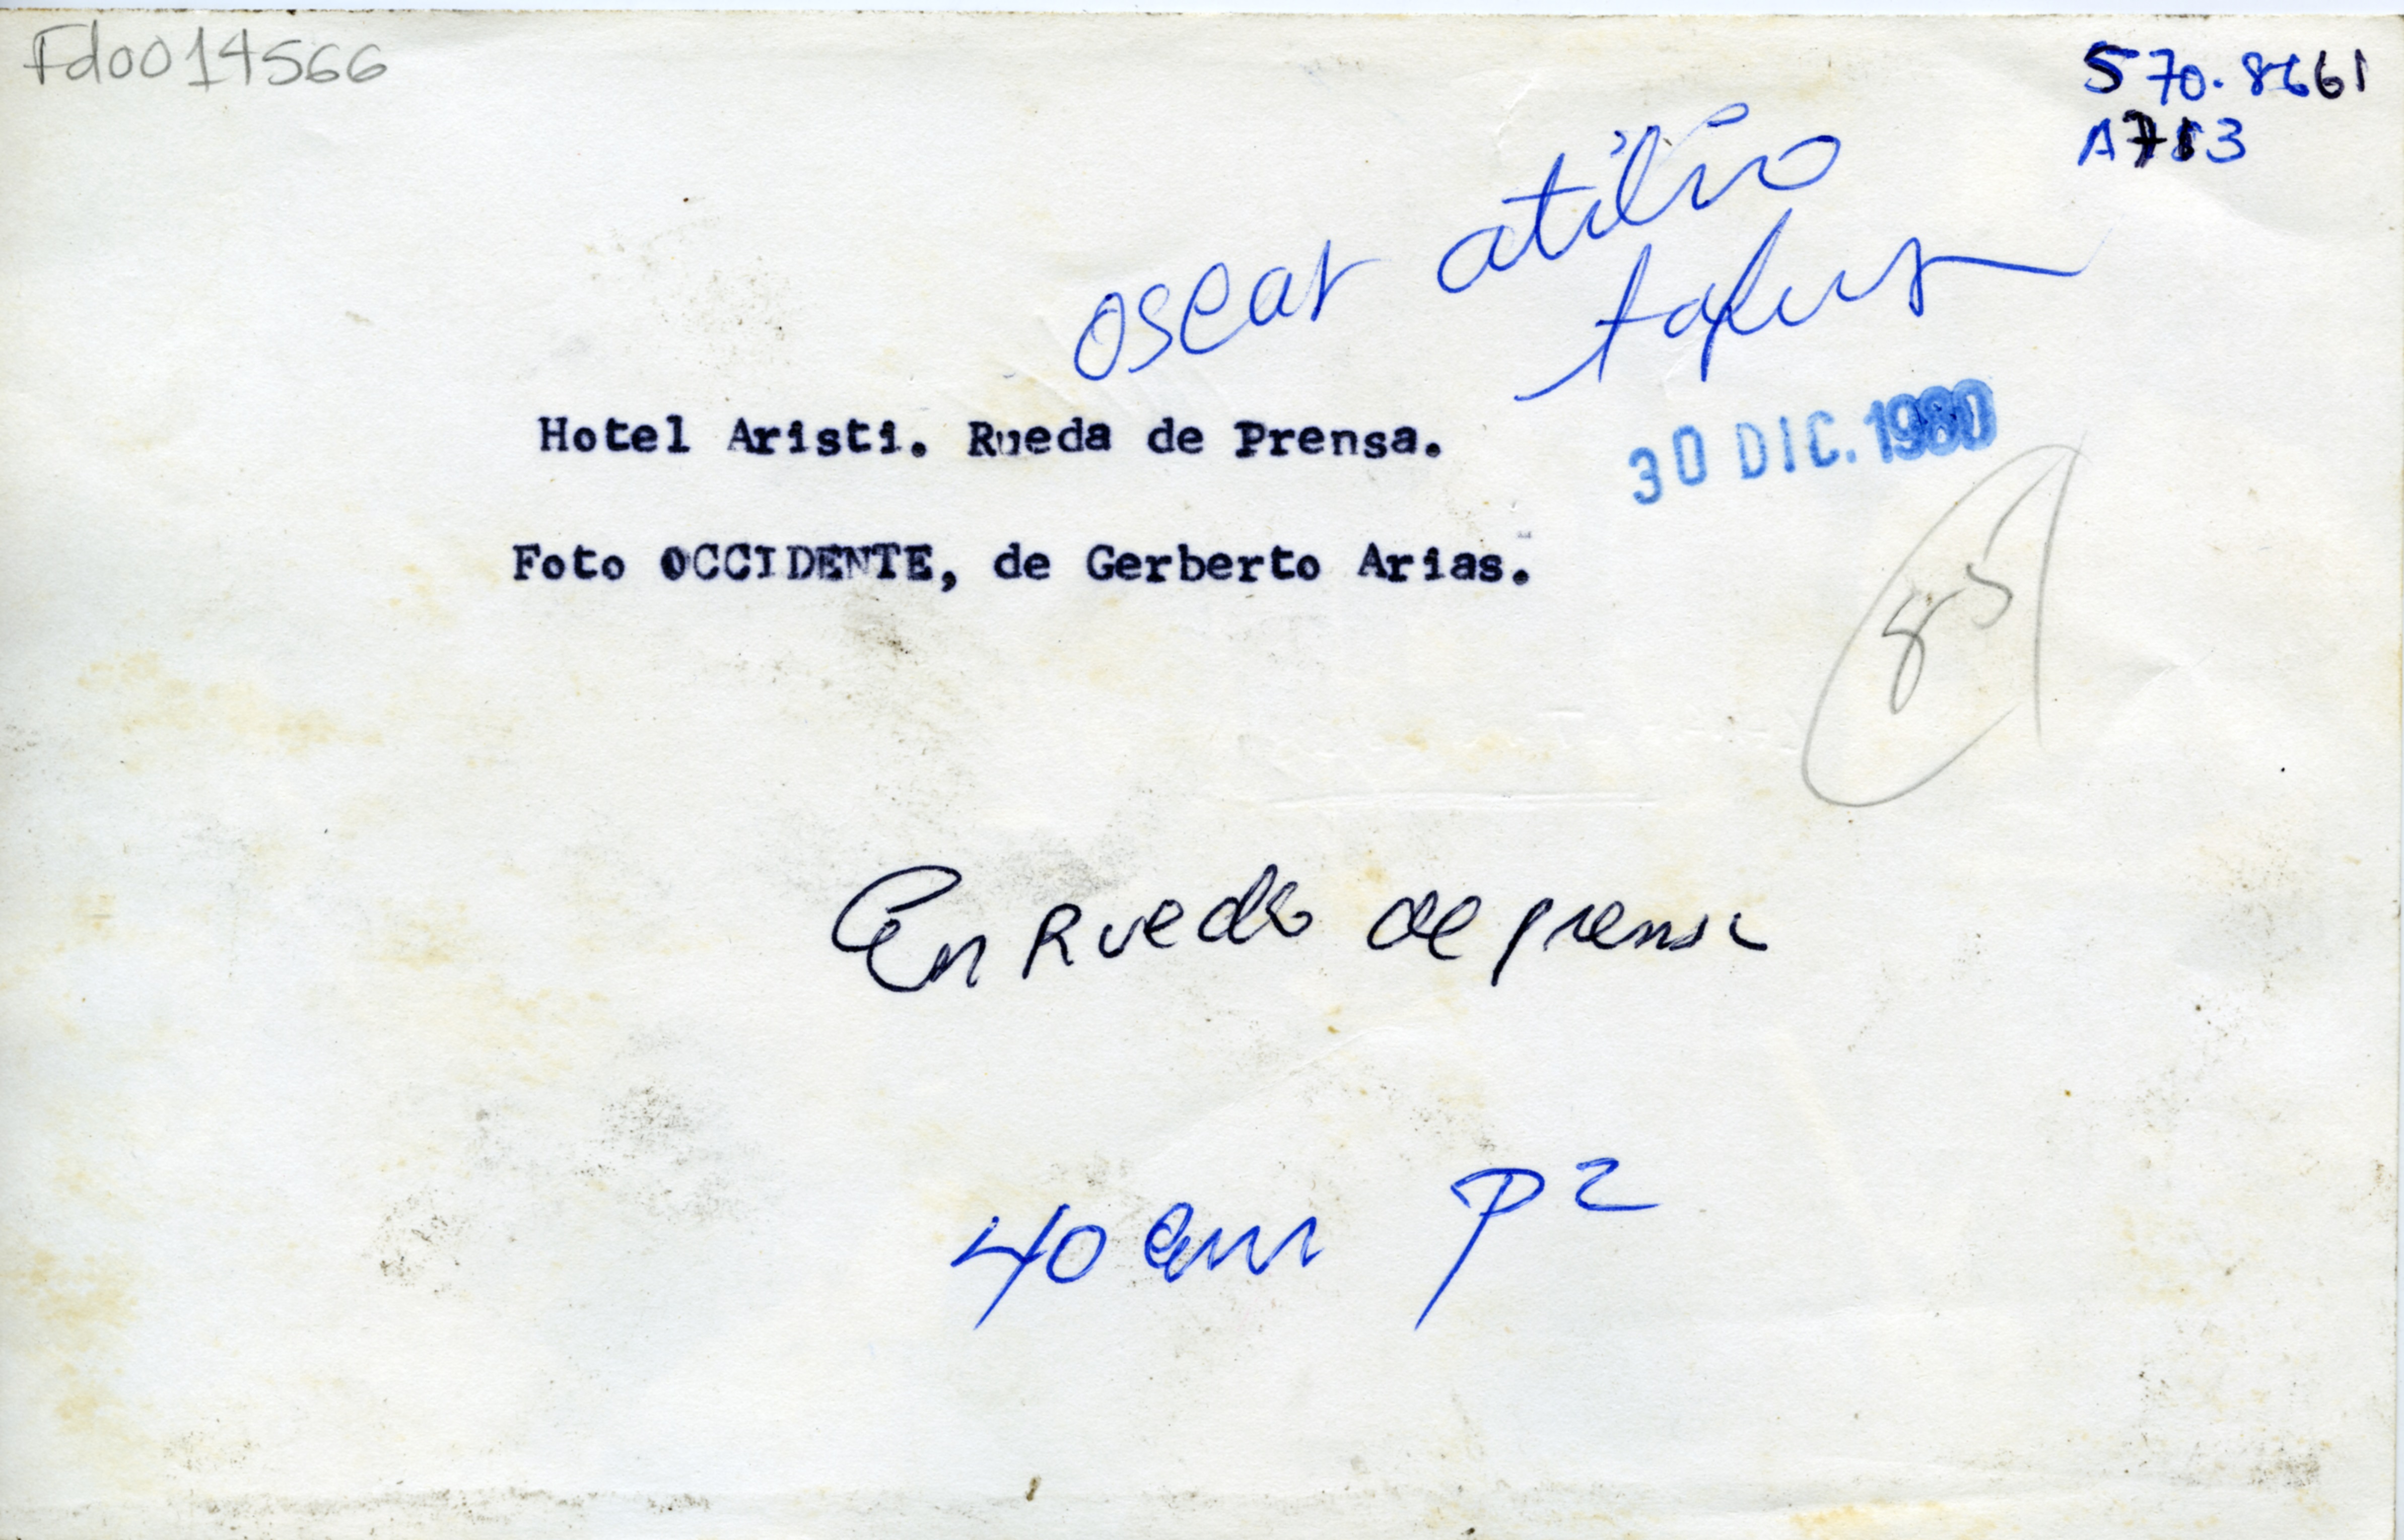 Fd0014566
570.8661
A713
oscar atilio
Hotel Aristi. Rueda de Prensa.
30 DIC. 1980
Foto OCCIDENTE, de Gerberto Arias.
85
En Rueda de prensa
40 em P2